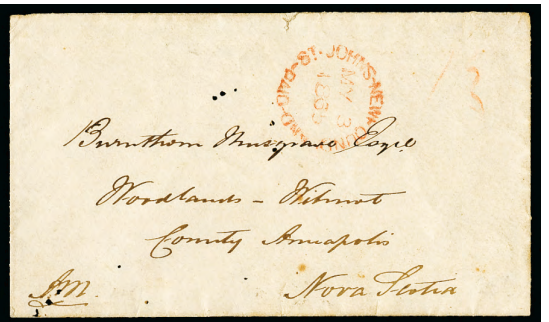 PAID-ST. JOHN'S-NEWFOUNDLAND
MY 3
3
Burnthorn Musgrave Esqre
Woodlands - Wilmot
County Annapolis
Nova Scotia